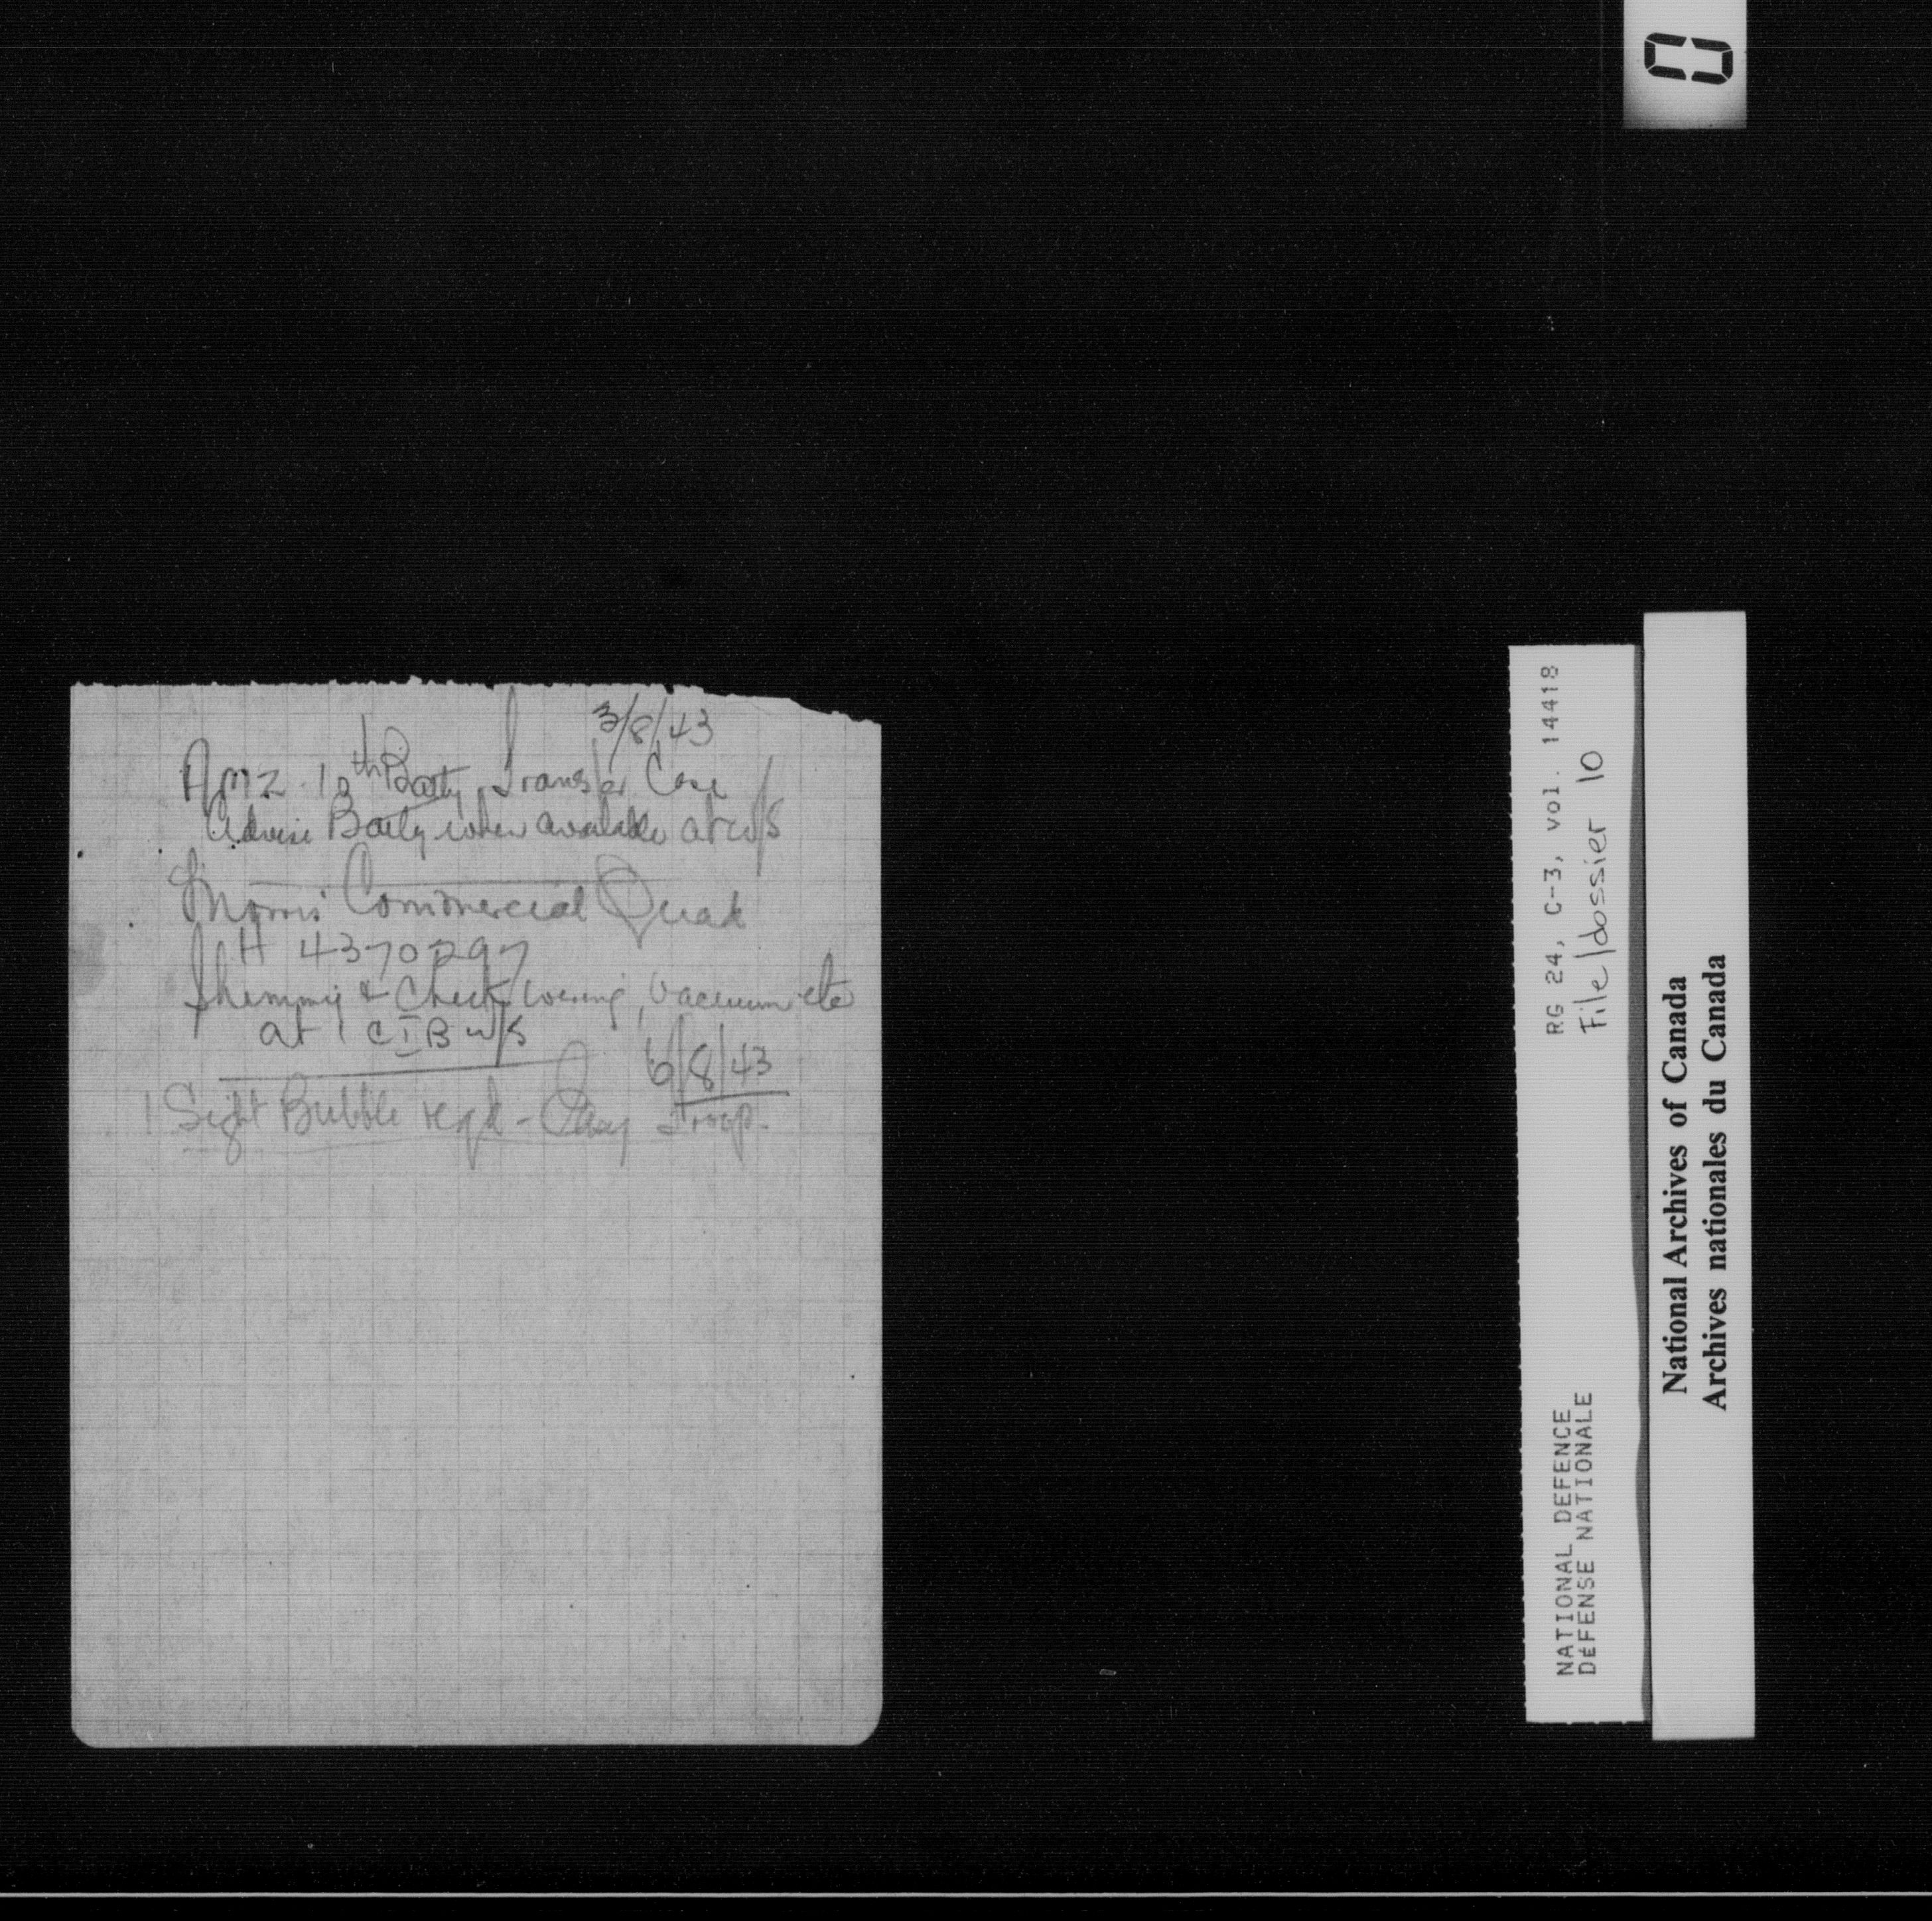 3/8/43
10th Batty Transfer Case
Advise Batty when available at w/s
Morris Commercial Quad
H 4370297
Shimmy & Check wiring, vacuum etc
at 1 CIB w/s
6/8/43
1 Sight Bubble reqd - Easy Troop.
RG 24, C-3, vol. 14418
File/dossier 10
NATIONAL DEFENCE
DéFENSE NATIONALE
National Archives of Canada
Archives nationales du Canada